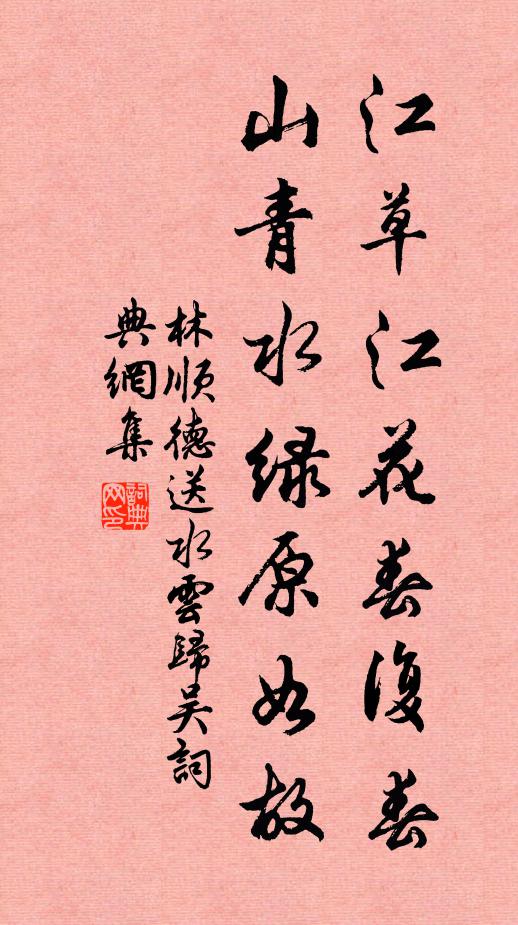 江草江花春復春
山青水绿原如故
林順德送水雲歸吴詞
典網集
詞典网印